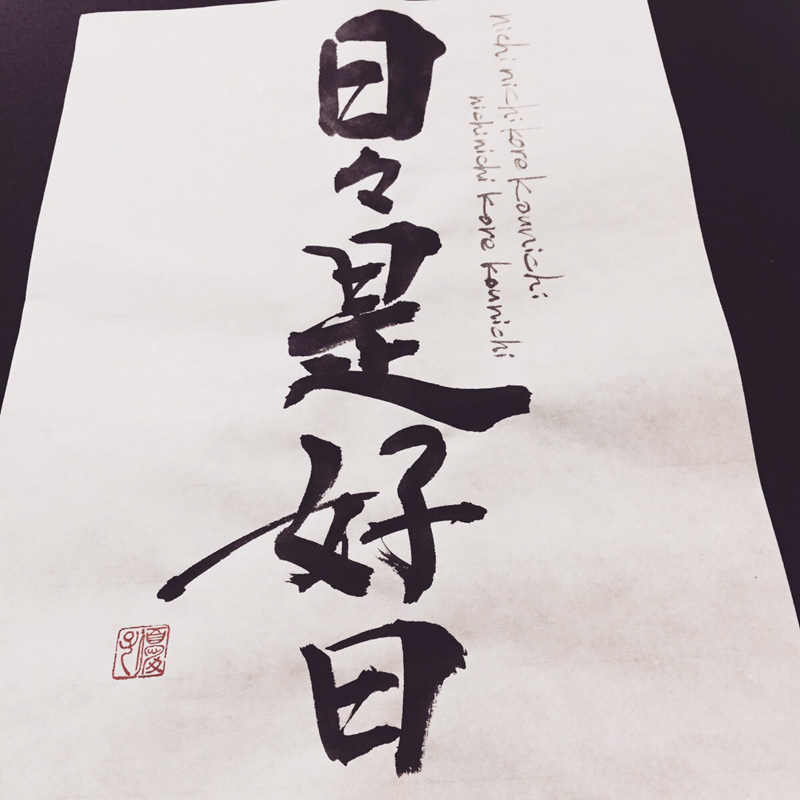 日々是好日
nichi nichi kore kounichi
nichinichi kore kounichi
優子